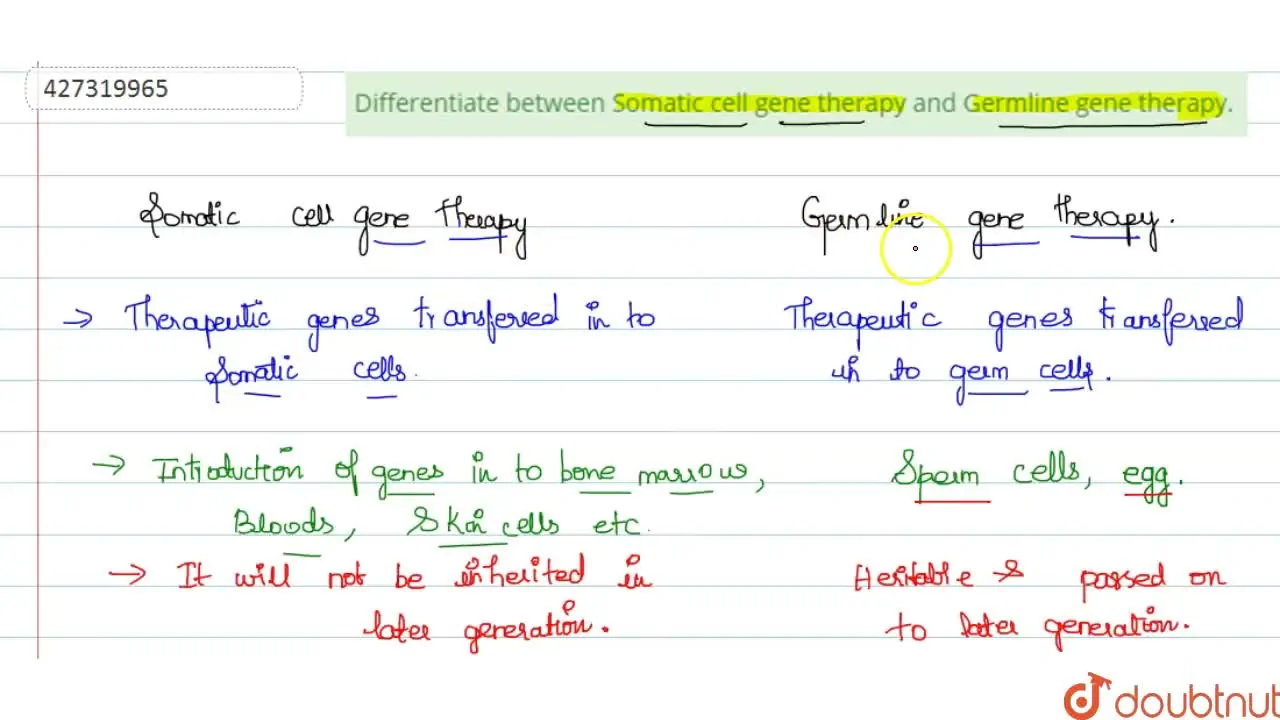 427319965
Differentiate between Somatic cell gene therapy and Germline gene therapy.
Somatic cell gene therapy
Germline gene therapy.
→ Therapeutic genes transferred in to
Somatic cells.
Therapeutic genes transferred
in to germ cells.
→ Introduction of genes in to bone marrow,
Bloods, Skin cells etc.
Sperm cells, egg.
→ It will not be inherited in
later generation.
Heritable & passed on
to later generation.
doubtnut